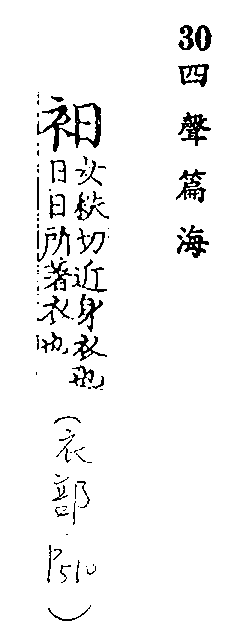 30四聲篇海
衵
女秩切近身衣也
日日所著衣也
(衣部 P510)